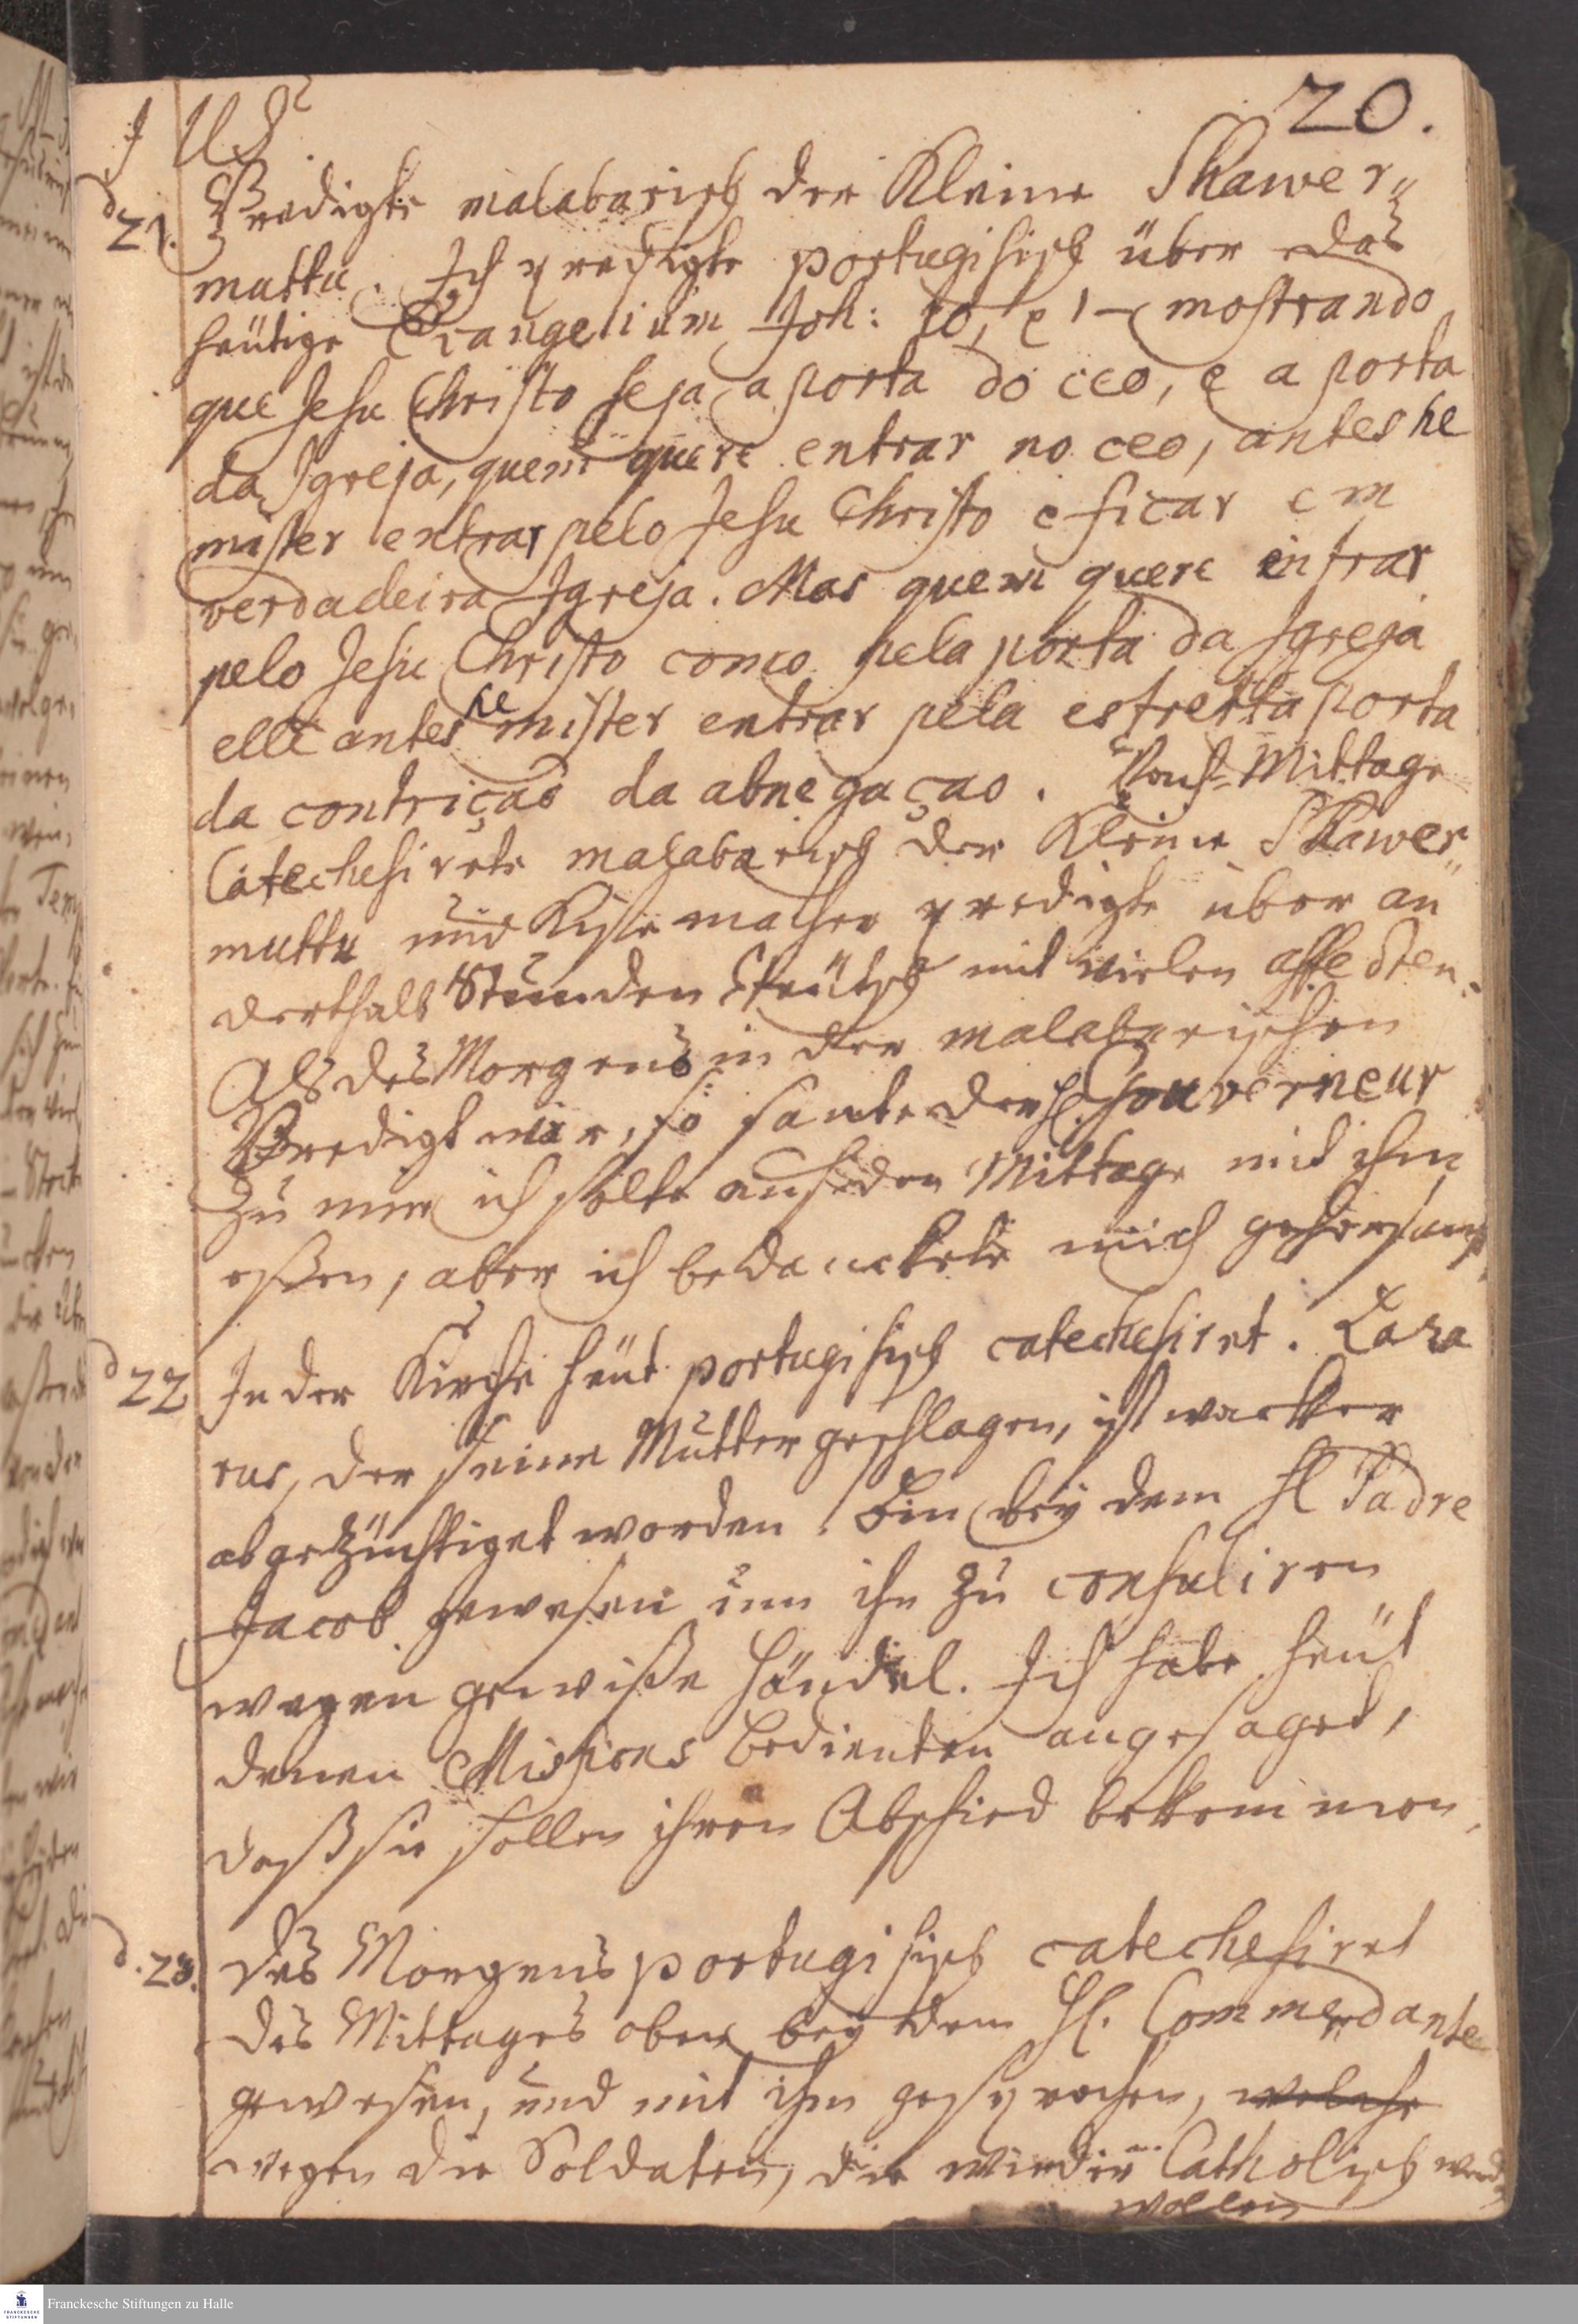 20.
d 21. Predigte malabarisch der Kleine Shawer,,
muttu. Ich predigte portugisisch über das
heütige Evangelium Joh: 10, mostrando
que Jesu Christo seja a porta do ceo, e a porta
da Igreja, quem quere entrar no ceo, antes he
mister entrar pelo Jesu Christo e ficar em
verdadeira Igreja. Mas quem quere entrar
pelo Jesu Christo como pela porta da Igreja
elle antes he mister entrar pela estreita porta
da contriçaõ da abnegaçao. Nach Mittage
Catechesirete malabarisch der Kleine Shawer,,
muttu und Kistemacher predigte über an
derthalb Stunden Teütsch mit vielen affecten.
Als des Morgens in der malabarischen
Predigt war, so sante der H. Gouverneur
zu mir ich solte auf den Mittage mit ihm
eßen, aber ich bedanckete mich gehorsamst
d 22 In der Kirche heüt portugisisch catechesiret. Laza
rus, der seine Mutter geschlagen, ist wacker
abgezüchtiget worden. Bin bey dem H Padre
Jacob gewesen um ihn zu consuliren
wegen gewiße Händel. Ich habe heüt
denen Missions Bedienten angesaget,
daß sie sollen ihren Abschied bekommen.
d. 23. Des Morgens portugisisch catechesiret
des Mittages oben bey dem H. Commendante
gewesen, und mit ihm gesprochen, welche
wegen die Soldaten, die wieder Catholisch werd
wollen
Franckesche Stiftungen zu Halle